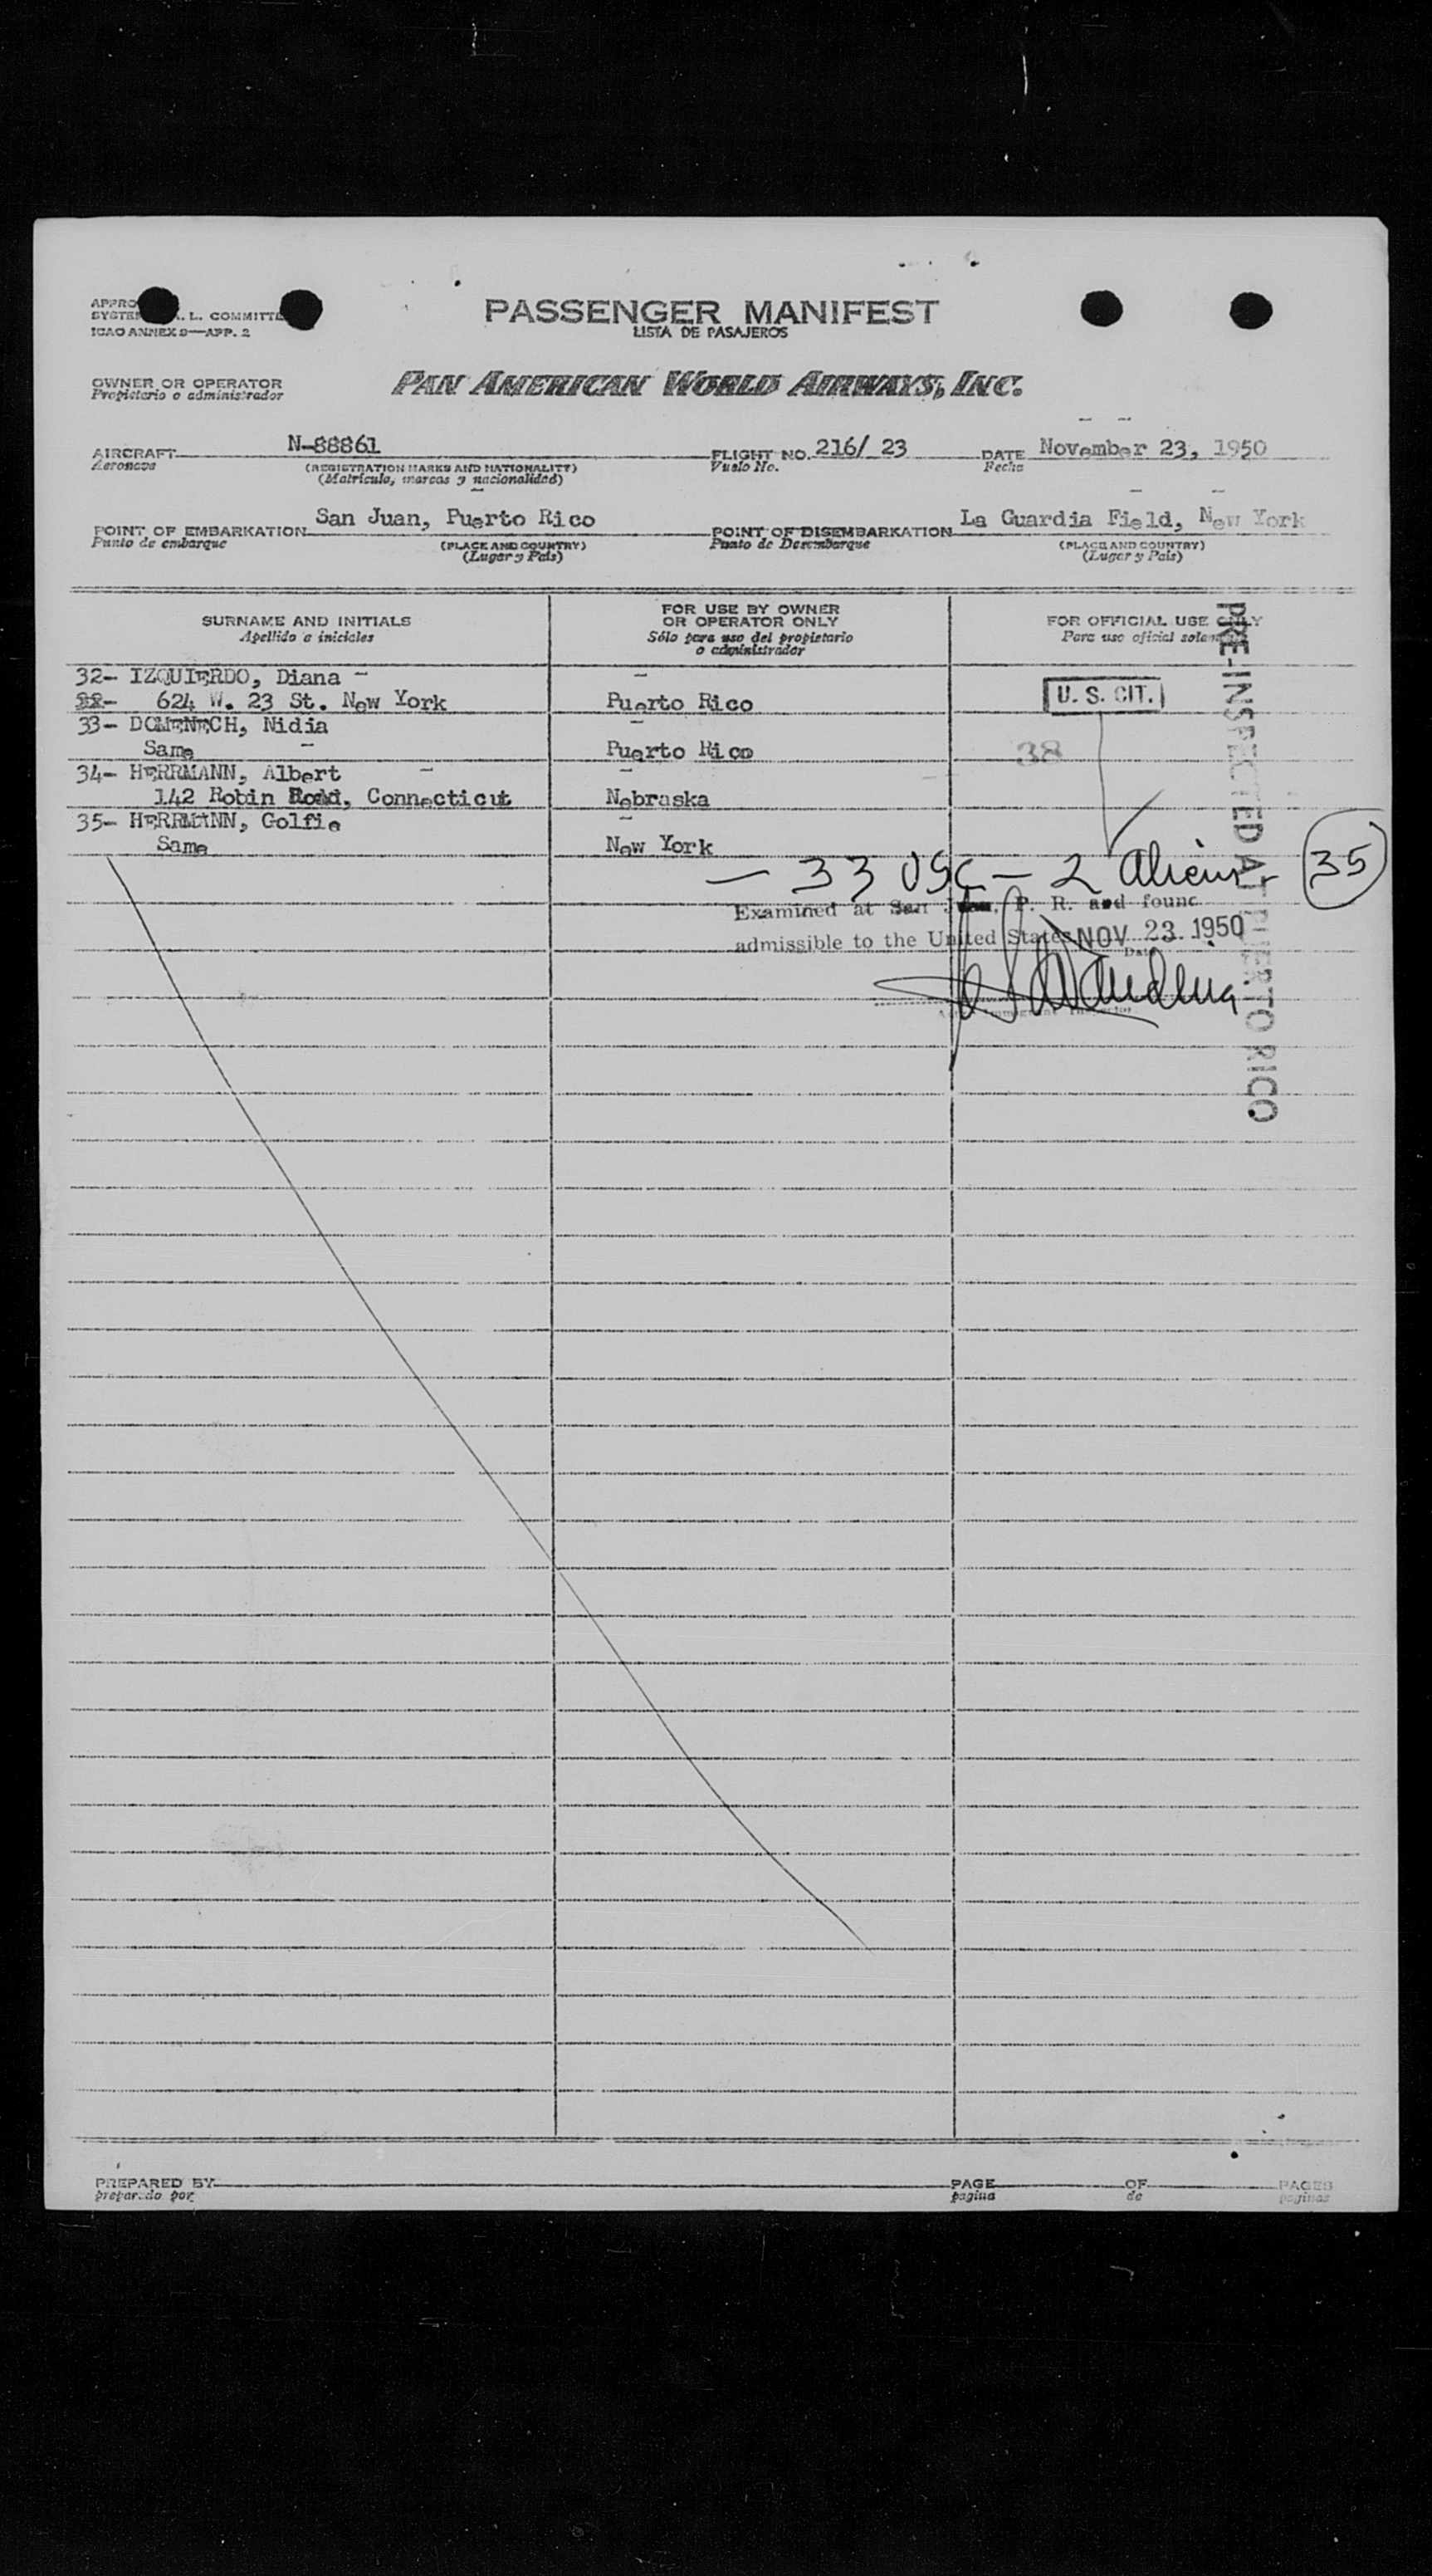 PASSENGER MANIFEST
LISTA DE PASAJEROS
L. COMMITTE
ICAO ANNEX 9—APP. 2
OWNER OR OPERATOR
Propietario o administrador
PAN AMERICAN WORLD AIRWAYS, INC.
AIRCRAFT N-88861 FLIGHT NO. 216/ 23 DATE November 23, 1950
Aeronave (REGISTRATION MARKS AND NATIONALITY) Vuelo No. Fecha
(Matricula, marcas y nacionalidad)
POINT OF EMBARKATION San Juan, Puerto Rico POINT OF DISEMBARKATION La Guardia Field, New York
Punto de embarque (PLACE AND COUNTRY) Punto de Desembarque (PLACE AND COUNTRY)
(Lugar y País) (Lugar y País)
SURNAME AND INITIALS
Apellido e iniciales
FOR USE BY OWNER
OR OPERATOR ONLY
Sólo para uso del propietario
o administrador
FOR OFFICIAL USE ONLY
Para uso oficial
PRE-INSPECTED AT PUERTO RICO
32- IZQUIERDO, Diana -
624 W. 23 St. New York Puerto Rico U. S. CIT.
33- DOMENECH, Nidia
Same Puerto Rico 38
34- HERRMANN, Albert
142 Robin Road, Connecticut Nebraska
35- HERRMANN, Golfie
Same New York
— 33 USC — 2 Aliens - 35
Examined at San Juan, P. R. and found
admissible to the United States NOV 23 1950
Date
PREPARED BY PAGE OF PAGES
preparado por pagina de paginas